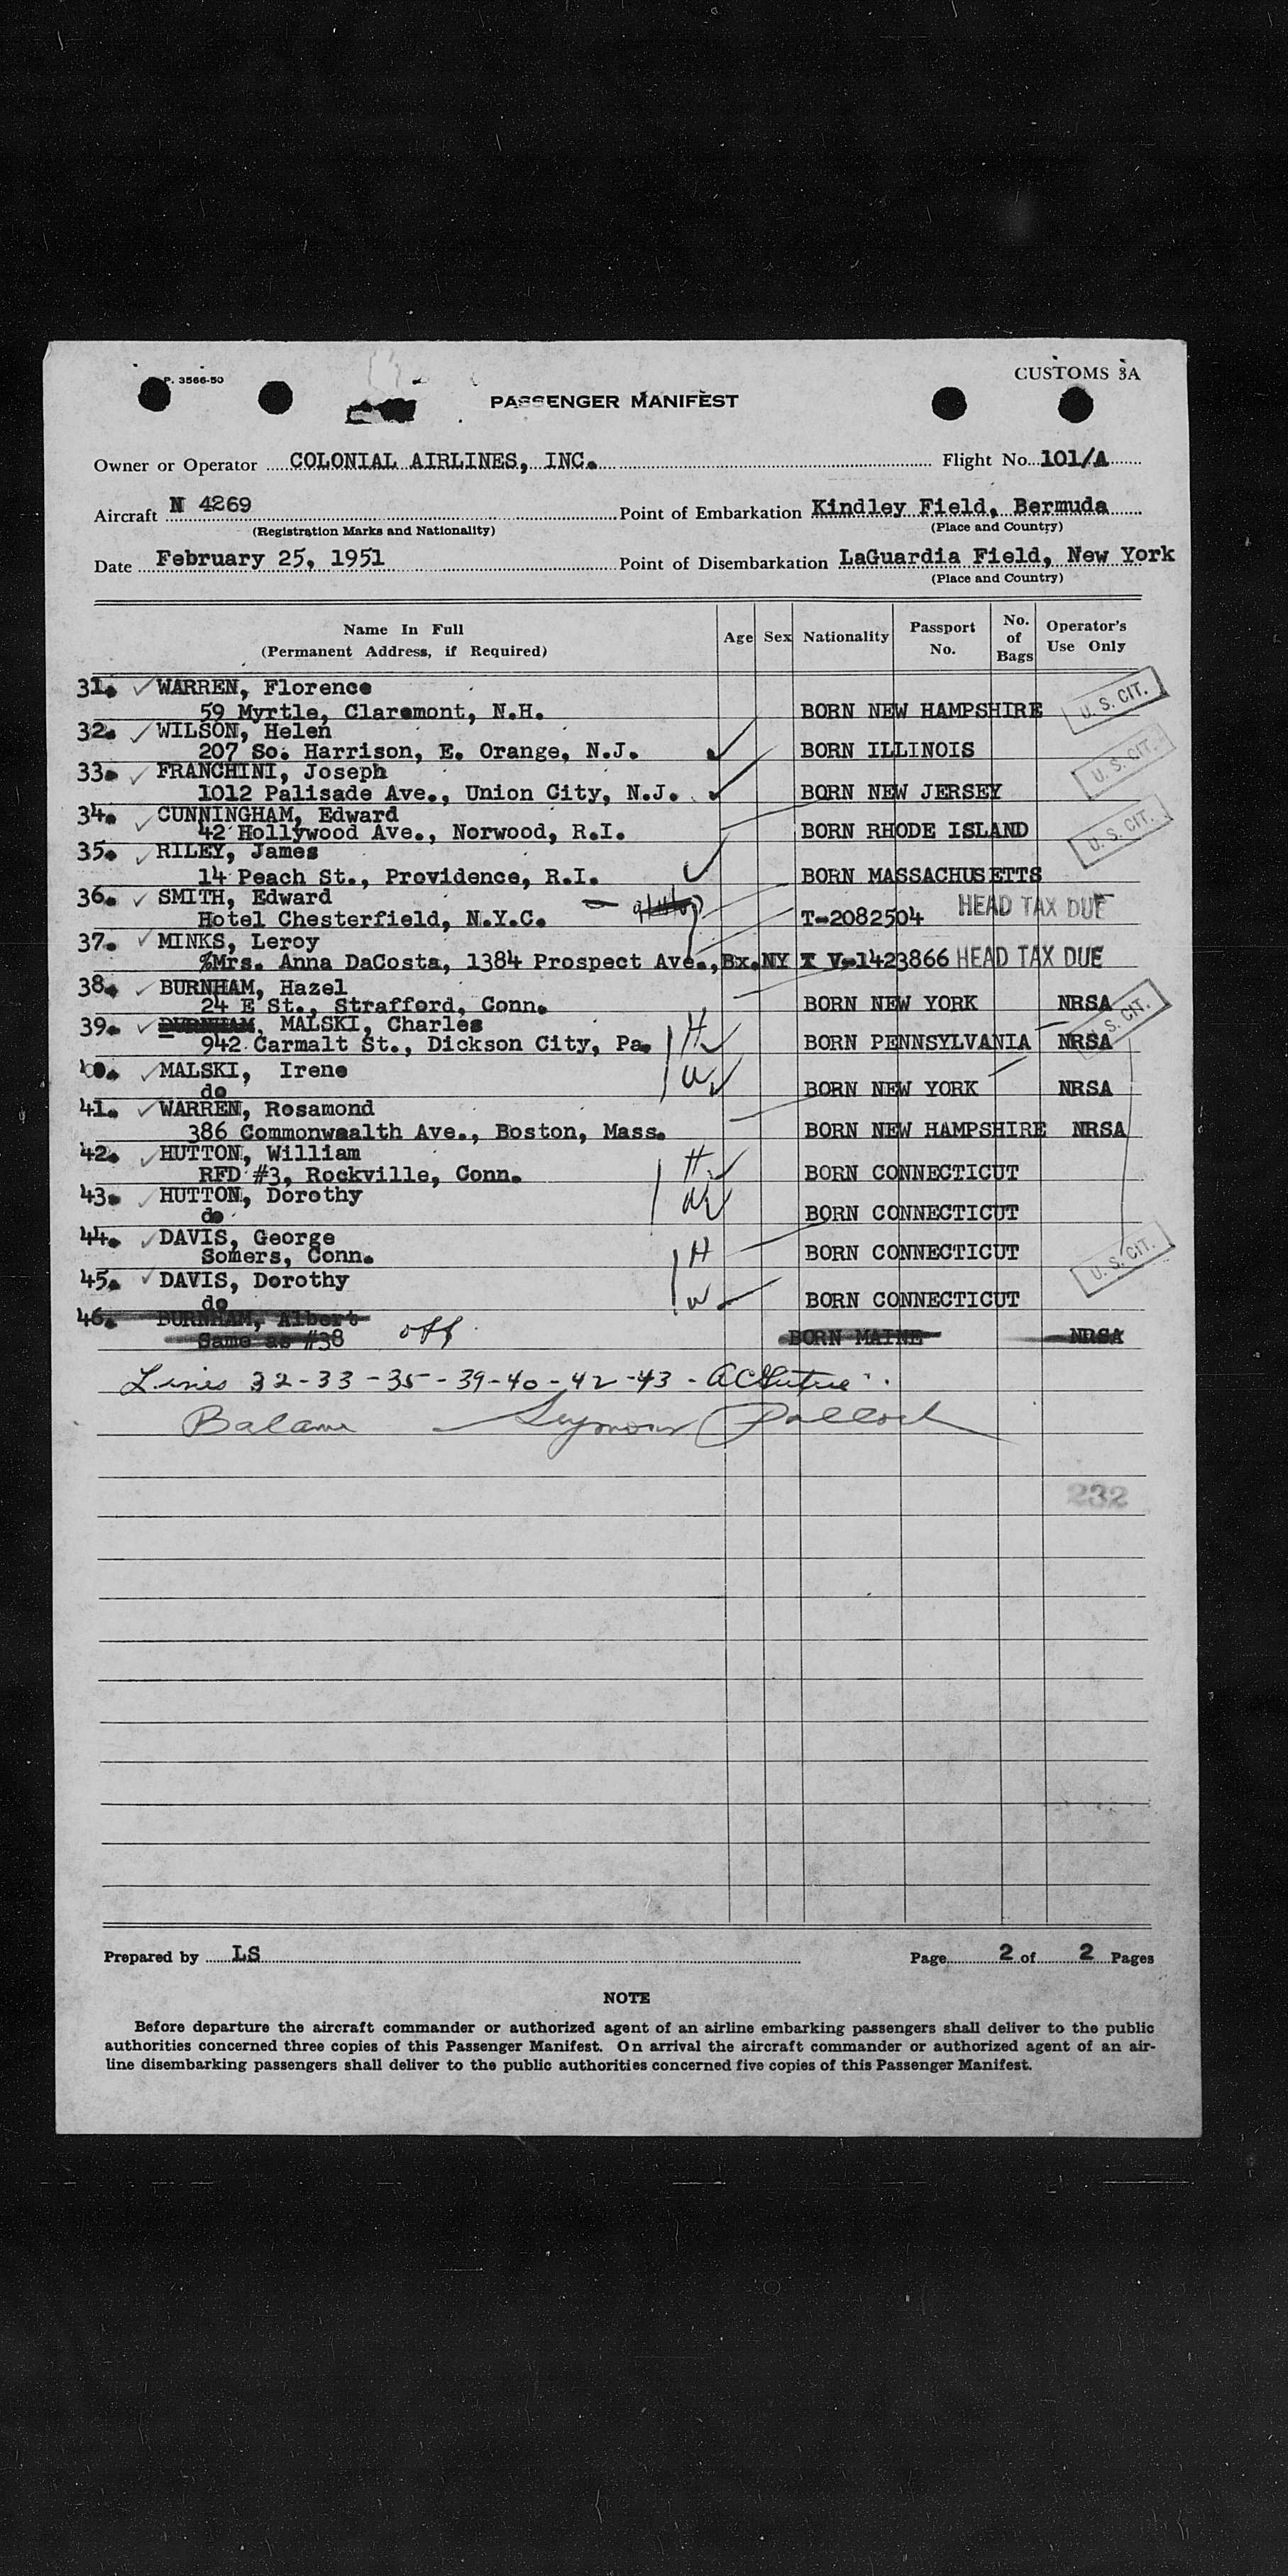 P. 3566-50
CUSTOMS 3A
PASSENGER MANIFEST
Owner or Operator COLONIAL AIRLINES, INC. Flight No. 101/A
Aircraft N 4269 Point of Embarkation Kindley Field, Bermuda
(Registration Marks and Nationality) (Place and Country)
Date February 25, 1951 Point of Disembarkation LaGuardia Field, New York
(Place and Country)
Name In Full (Permanent Address, if Required) Age Sex Nationality Passport No. No. of Bags Operator's Use Only
31. WARREN, Florence
59 Myrtle, Claremont, N.H. BORN NEW HAMPSHIRE U. S. CIT.
32. WILSON, Helen
207 So. Harrison, E. Orange, N.J. BORN ILLINOIS U. S. CIT.
33. FRANCHINI, Joseph
1012 Palisade Ave., Union City, N.J. BORN NEW JERSEY
34. CUNNINGHAM, Edward
42 Hollywood Ave., Norwood, R.I. BORN RHODE ISLAND U. S. CIT.
35. RILEY, James
14 Peach St., Providence, R.I. BORN MASSACHUSETTS
36. SMITH, Edward
Hotel Chesterfield, N.Y.C. T-2082504 HEAD TAX DUE
37. MINKS, Leroy
%Mrs. Anna DaCosta, 1384 Prospect Ave., Bx.NY V-1423866 HEAD TAX DUE
38. BURNHAM, Hazel
24 E St., Strafford, Conn. BORN NEW YORK NRSA
39. BURNHAM, MALSKI, Charles
942 Carmalt St., Dickson City, Pa. H BORN PENNSYLVANIA NRSA U. S. CIT.
40. MALSKI, Irene
do W BORN NEW YORK NRSA
41. WARREN, Rosamond
386 Commonwealth Ave., Boston, Mass. BORN NEW HAMPSHIRE NRSA
42. HUTTON, William
RFD #3, Rockville, Conn. H BORN CONNECTICUT
43. HUTTON, Dorothy
do W BORN CONNECTICUT
44. DAVIS, George
Somers, Conn. H BORN CONNECTICUT U. S. CIT.
45. DAVIS, Dorothy
do W BORN CONNECTICUT
46. BURNHAM, Albert
Same as #38 off BORN MAINE NRSA
Lines 32-33-35-39-40-42-43 -
Seymour Pollock
232
Prepared by LS Page 2 of 2 Pages
NOTE
Before departure the aircraft commander or authorized agent of an airline embarking passengers shall deliver to the public
authorities concerned three copies of this Passenger Manifest. On arrival the aircraft commander or authorized agent of an air-
line disembarking passengers shall deliver to the public authorities concerned five copies of this Passenger Manifest.